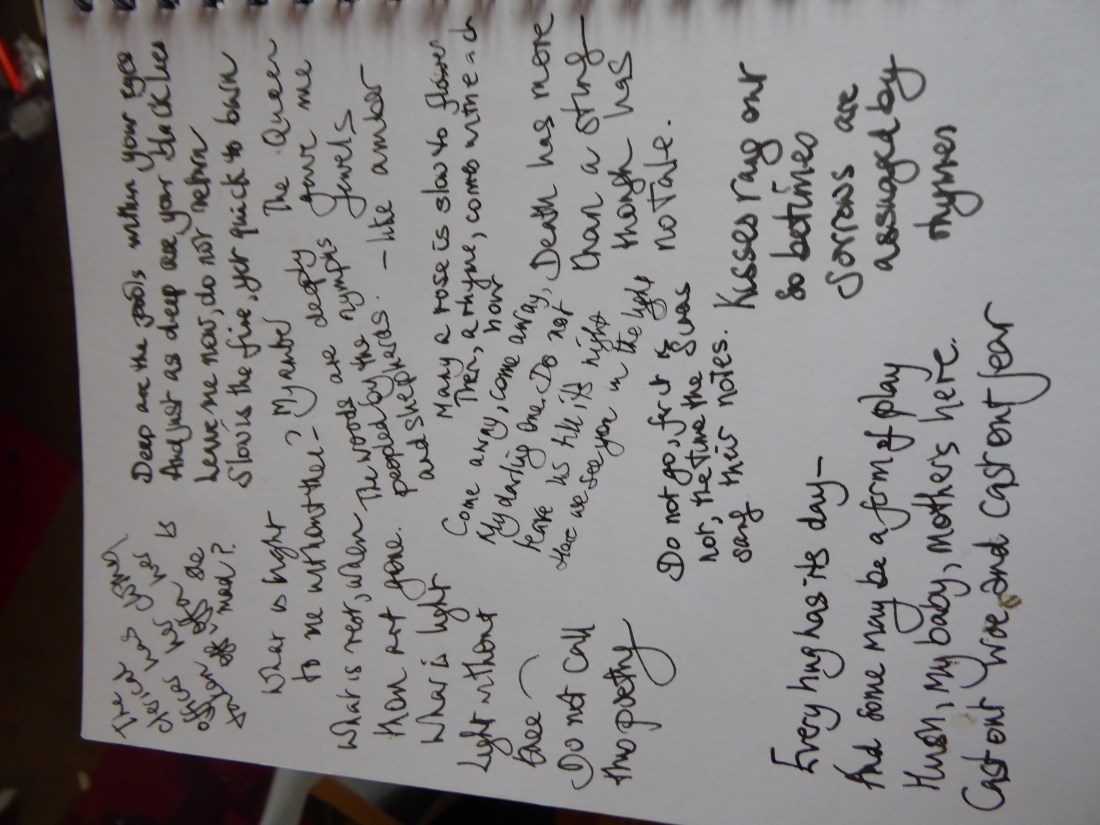 There was
clerical her
her is
off she
mad?
Deep are the pools within your eyes
And just as deep are your black lies
Leave me now, do not return
Slow is the fire, yet quick to burn
What is light
to me without thee?
What is rest, when
thou art gone.
What is light
light without
thee
My amber
The woods are deeply
peopled by the nymphs
and shepherds.
The Queen
gave me
jewels
- like amber
Many a rose is slow to flower
Then, a rhyme, comes with each
hour
Come away, come away,
My darling one. Do not
leave us till its night
we see you in the light
Death has more
than a sting
though has
no tale.
Do not call
this poetry
Do not go, for it is
not, the time the
sang their notes.
Kisses ring out
so betimes
Sorrows are
assuaged by
rhymes
Every thing has its day –
And some may be a form of play
Hush, my baby, mother's here.
Cast out woe and cast out fear